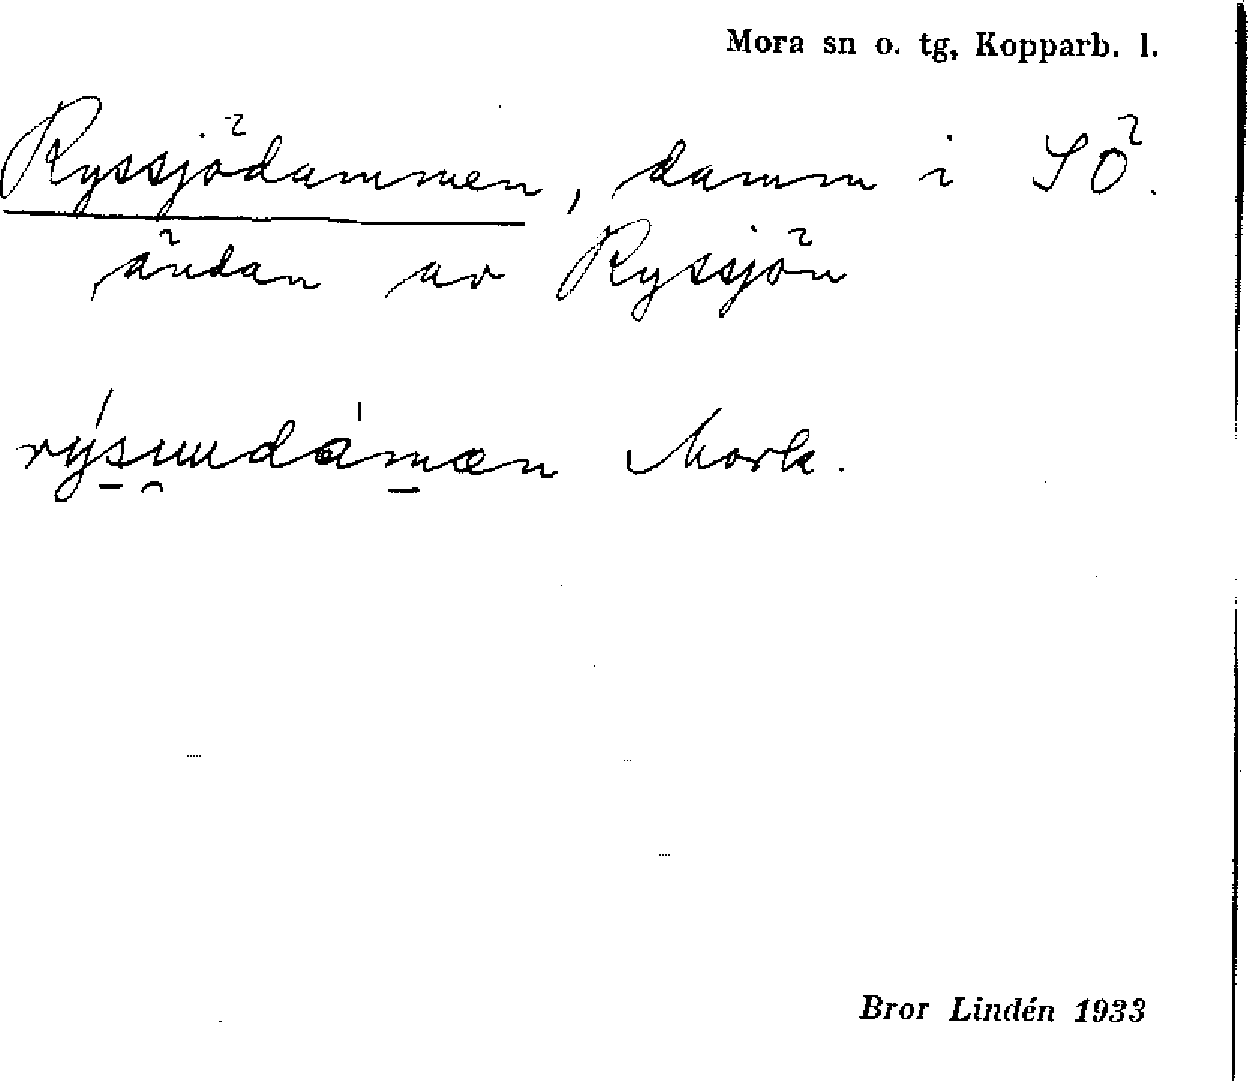 Mora sn o. tg, Kopparb. l.
Ryssjödammen, damm i SÖ.
ändan av Ryssjön
Bror Lindén 1933